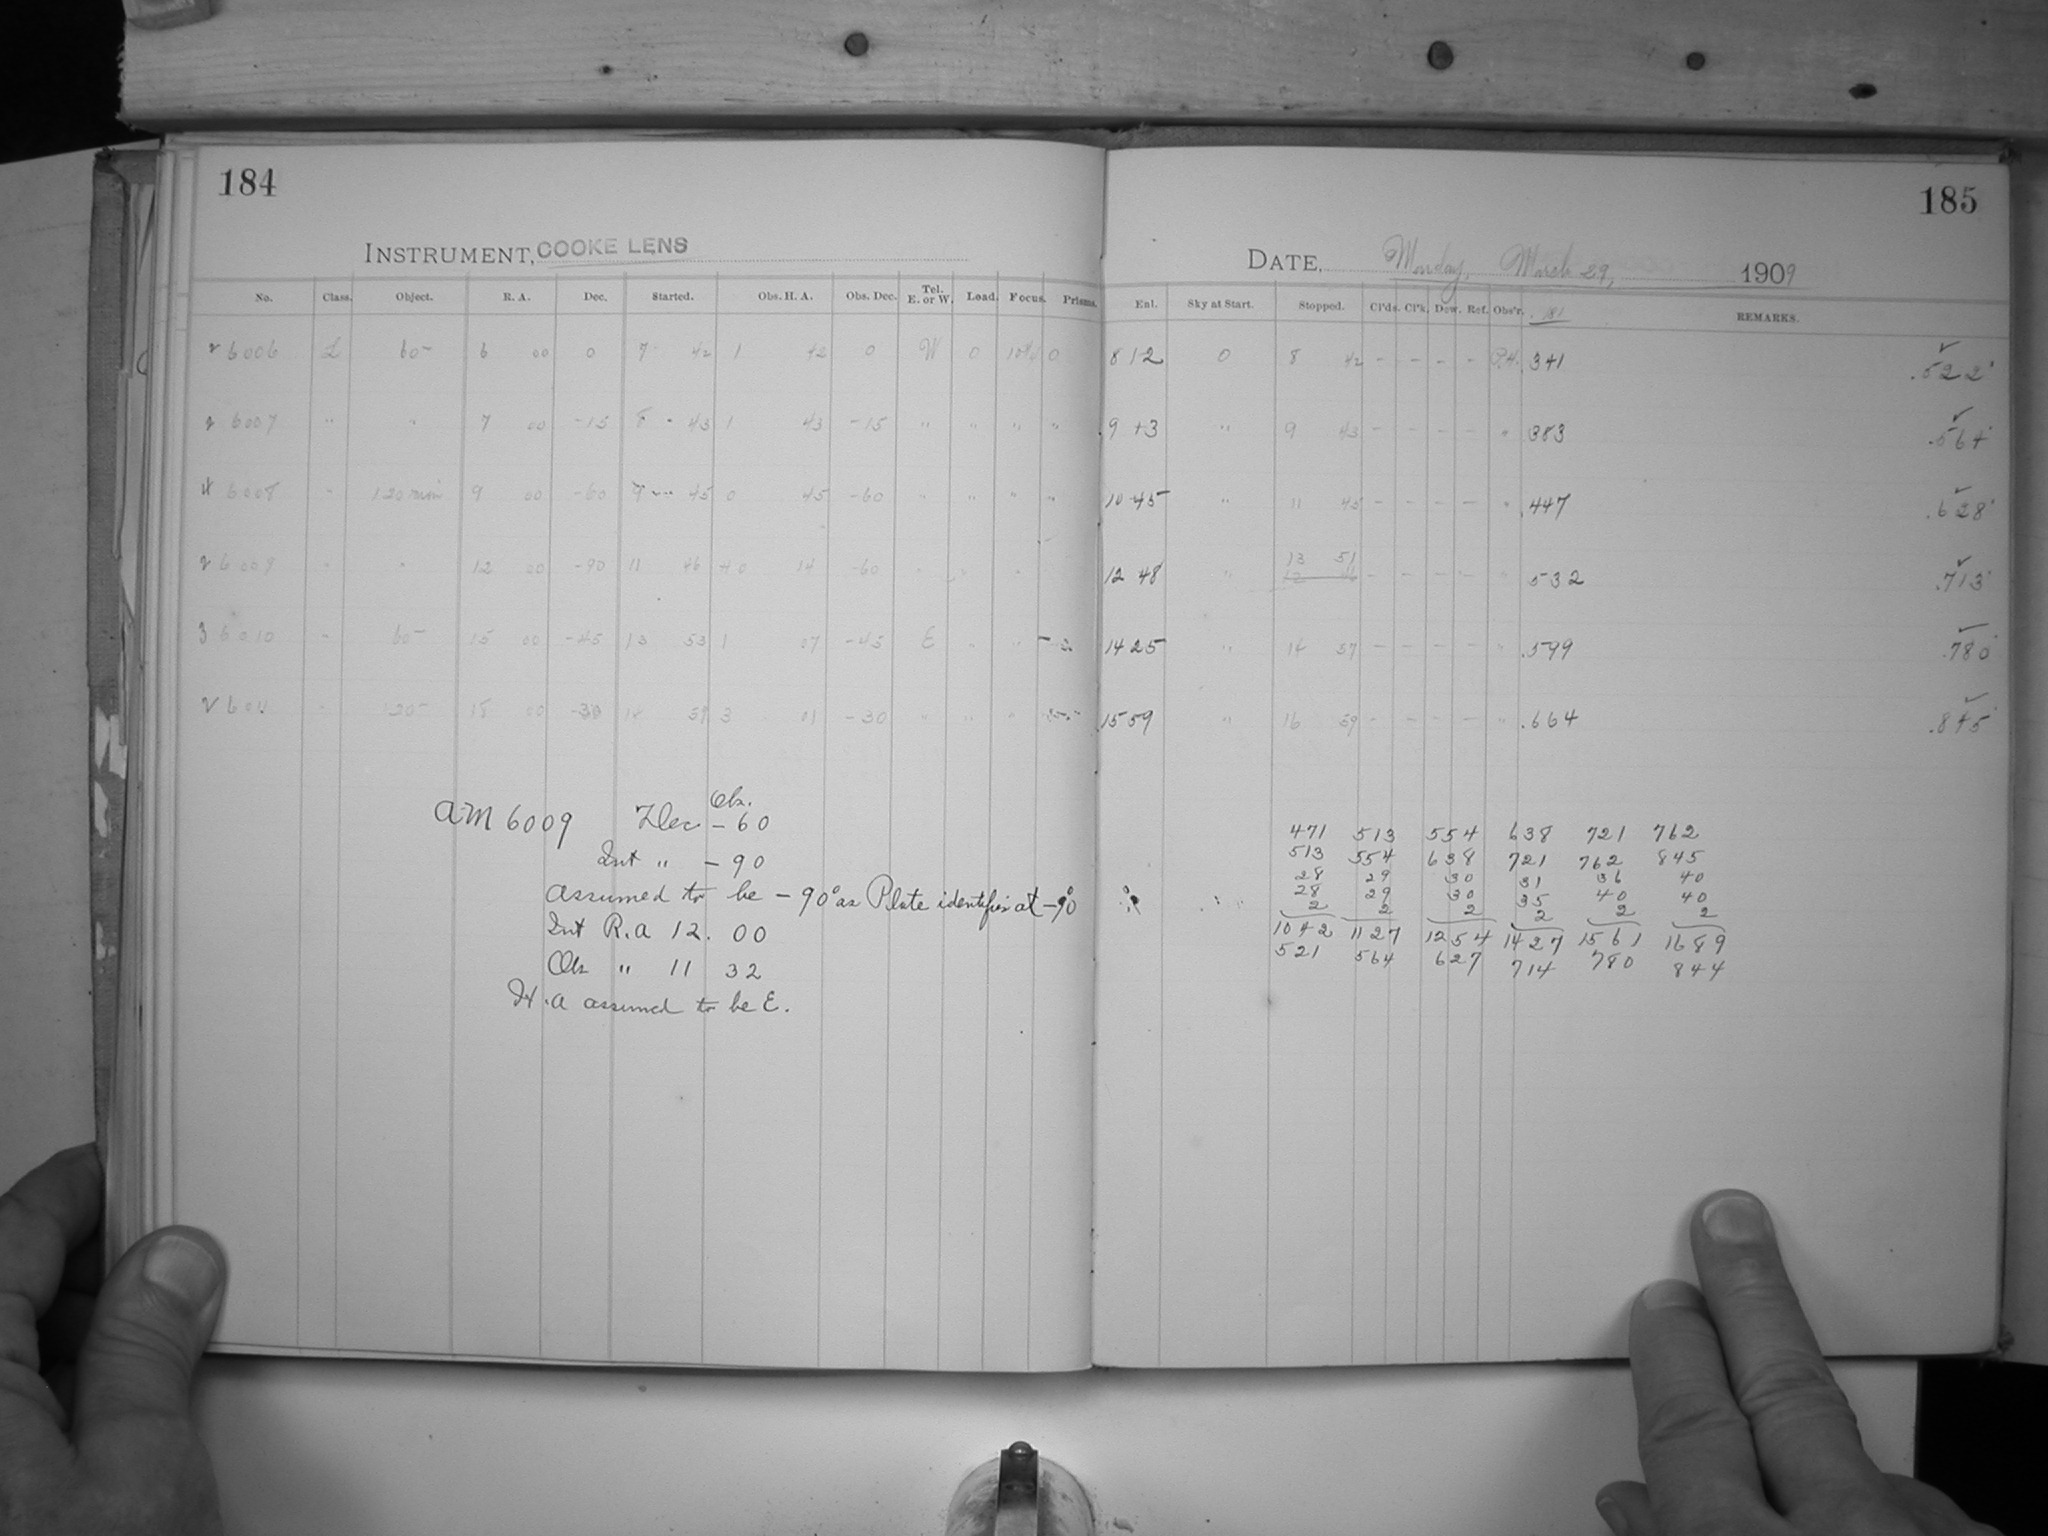 184
INSTRUMENT, COOKE LENS
No. Class. Object. R. A. Dec. Started. Obs. H. A. Obs. Dec. Tel. E. or W. Load. Focus. Prisms.
2 6006 L 60- 6 00 0 7 42 1 42 0 W 0 0
2 6007 " " 7 00 -15 8 43 1 43 -15 " " " "
4 6008 " 120 min 9 00 -60 9 45 0 45 -60 " " " "
2 6009 " " 12 00 -90 11 46 +0 14 -60 " " "
3 6010 " 60- 15 00 -45 13 53 1 07 -45 E " "
2 6011 " 120- 18 00 -30 14 59 3 01 -30 " " "
AM 6009 Dec Obs. -60
Int " -90
assumed to be -90° as Plate identifies at -90°
Int R.A 12. 00
Obs " 11 32
H.A assumed to be E.
185
DATE, Monday, March 29, 1909
Enl. Sky at Start. Stopped. Cl'ds. Cl'k. Dew. Ref. Obs'r. .181 REMARKS.
8 12 0 8 42 - - - - P.H. .341 .522
9 13 " 9 43 - - - - " .383 .564
10 45 " 11 45 - - - - " .447 .628
12 48 " 13 51 - - - - " .532 .713
14 25 " 14 57 - - - - " .599 .780
15 59 " 16 59 - - - - " .664 .845
471 513 554 638 721 762
513 554 638 721 762 845
28 29 30 31 36 40
28 29 30 35 40 40
2 2 2 2 2 2
1042 1127 1254 1427 1561 1689
521 564 627 714 780 844